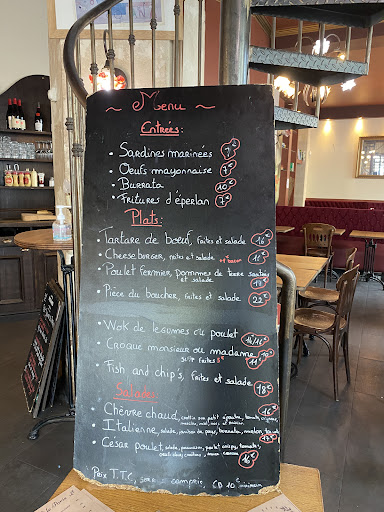 ~ Menu ~
Entrées:
• Sardines marinées 9€
• Oeufs mayonnaise 7€
• Burrata 10€
• Fritures d'éperlan 7€
Plats:
• Tartare de bœuf, frites et salade 16€
• Cheese burger, frites et salade
• Poulet fermier, pommes de terre sautées
et salade
• Pièce du boucher, frites et salade 22€
• Wok de légumes ou poulet 14/16€
• Croque monsieur ou madame 10€
frites 11€
• Fish and chip's, frites et salade 18€
Salades:
• Chèvre chaud, 16€
• Italienne, salade, jambon de pays, burrata, melon
• César poulet, salade, parmesan, poulet crispy, tomates,
16€
Prix T.T.C, service compris, CB 10€ minimum